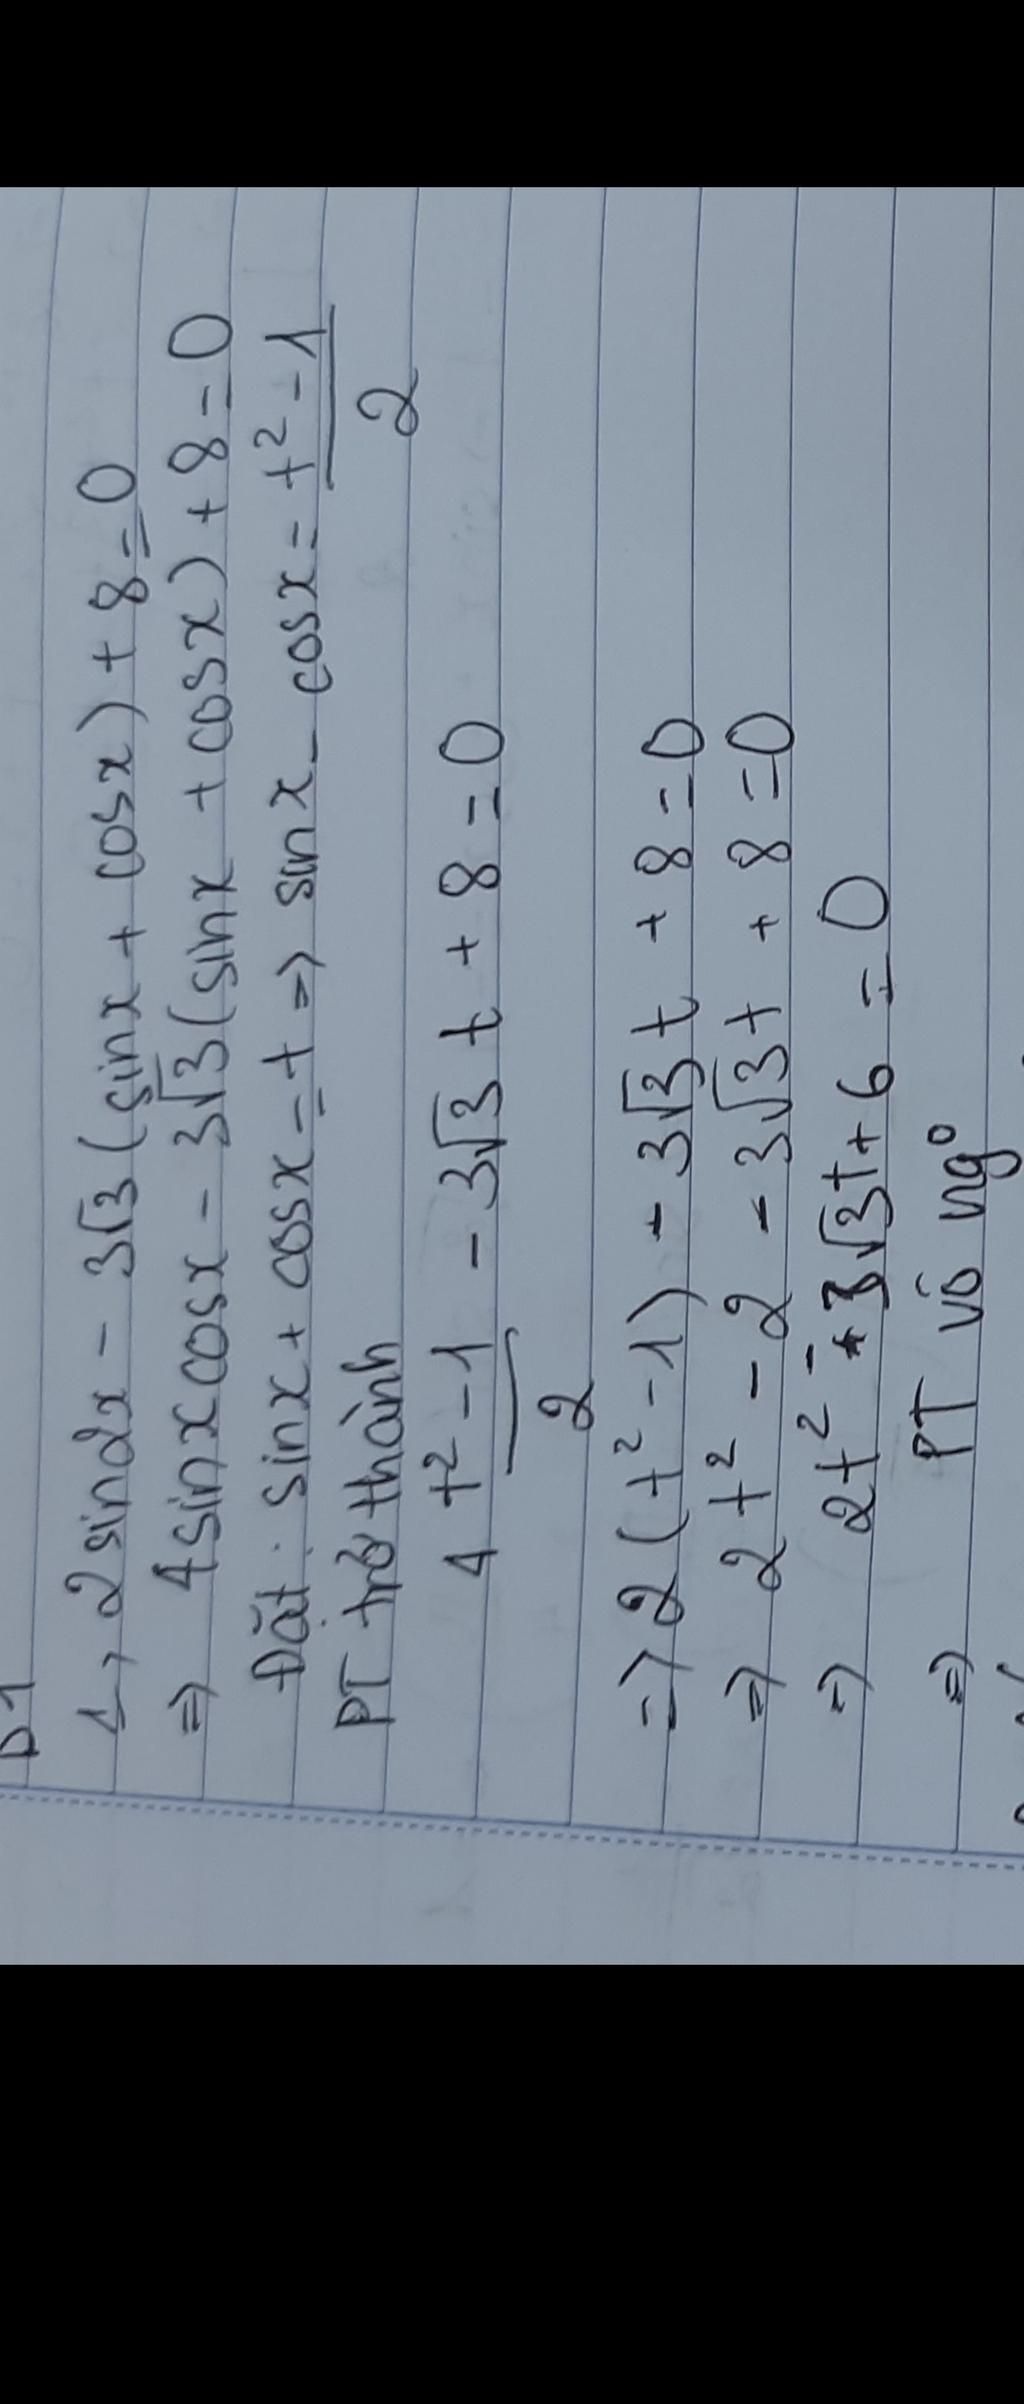 1, 2sin2x - 3√3(sinx + cosx) + 8 = 0
=> 4sinxcosx - 3√3(sinx + cosx) + 8 = 0
Đặt: sinx + cosx = t => sinx - cosx = t² - 1 / 2
PT trở thành
4 t² - 1 / 2 - 3√3 t + 8 = 0
=> 2(t² - 1) - 3√3 t + 8 = 0
=> 2t² - 2 - 3√3t + 8 = 0
=> 2t² - 3√3t + 6 = 0
=> PT vô ng⁰